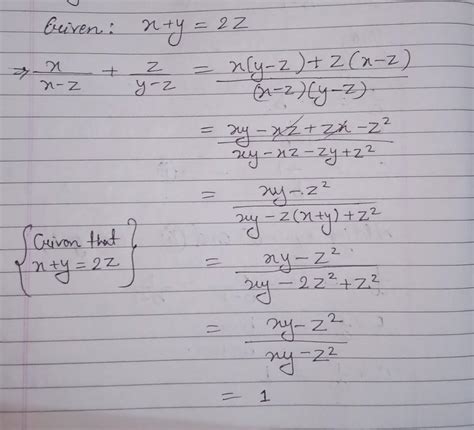 Given: x+y = 2z
⇒ x/(x-z) + z/(y-z) = (x(y-z)+z(x-z))/((x-z)(y-z))
= (xy-xz+zx-z²)/(xy-xz-zy+z²)
= (xy-z²)/(xy-z(x+y)+z²)
{Given that
x+y=2z}
= (xy-z²)/(xy-2z²+z²)
= (xy-z²)/(xy-z²)
= 1